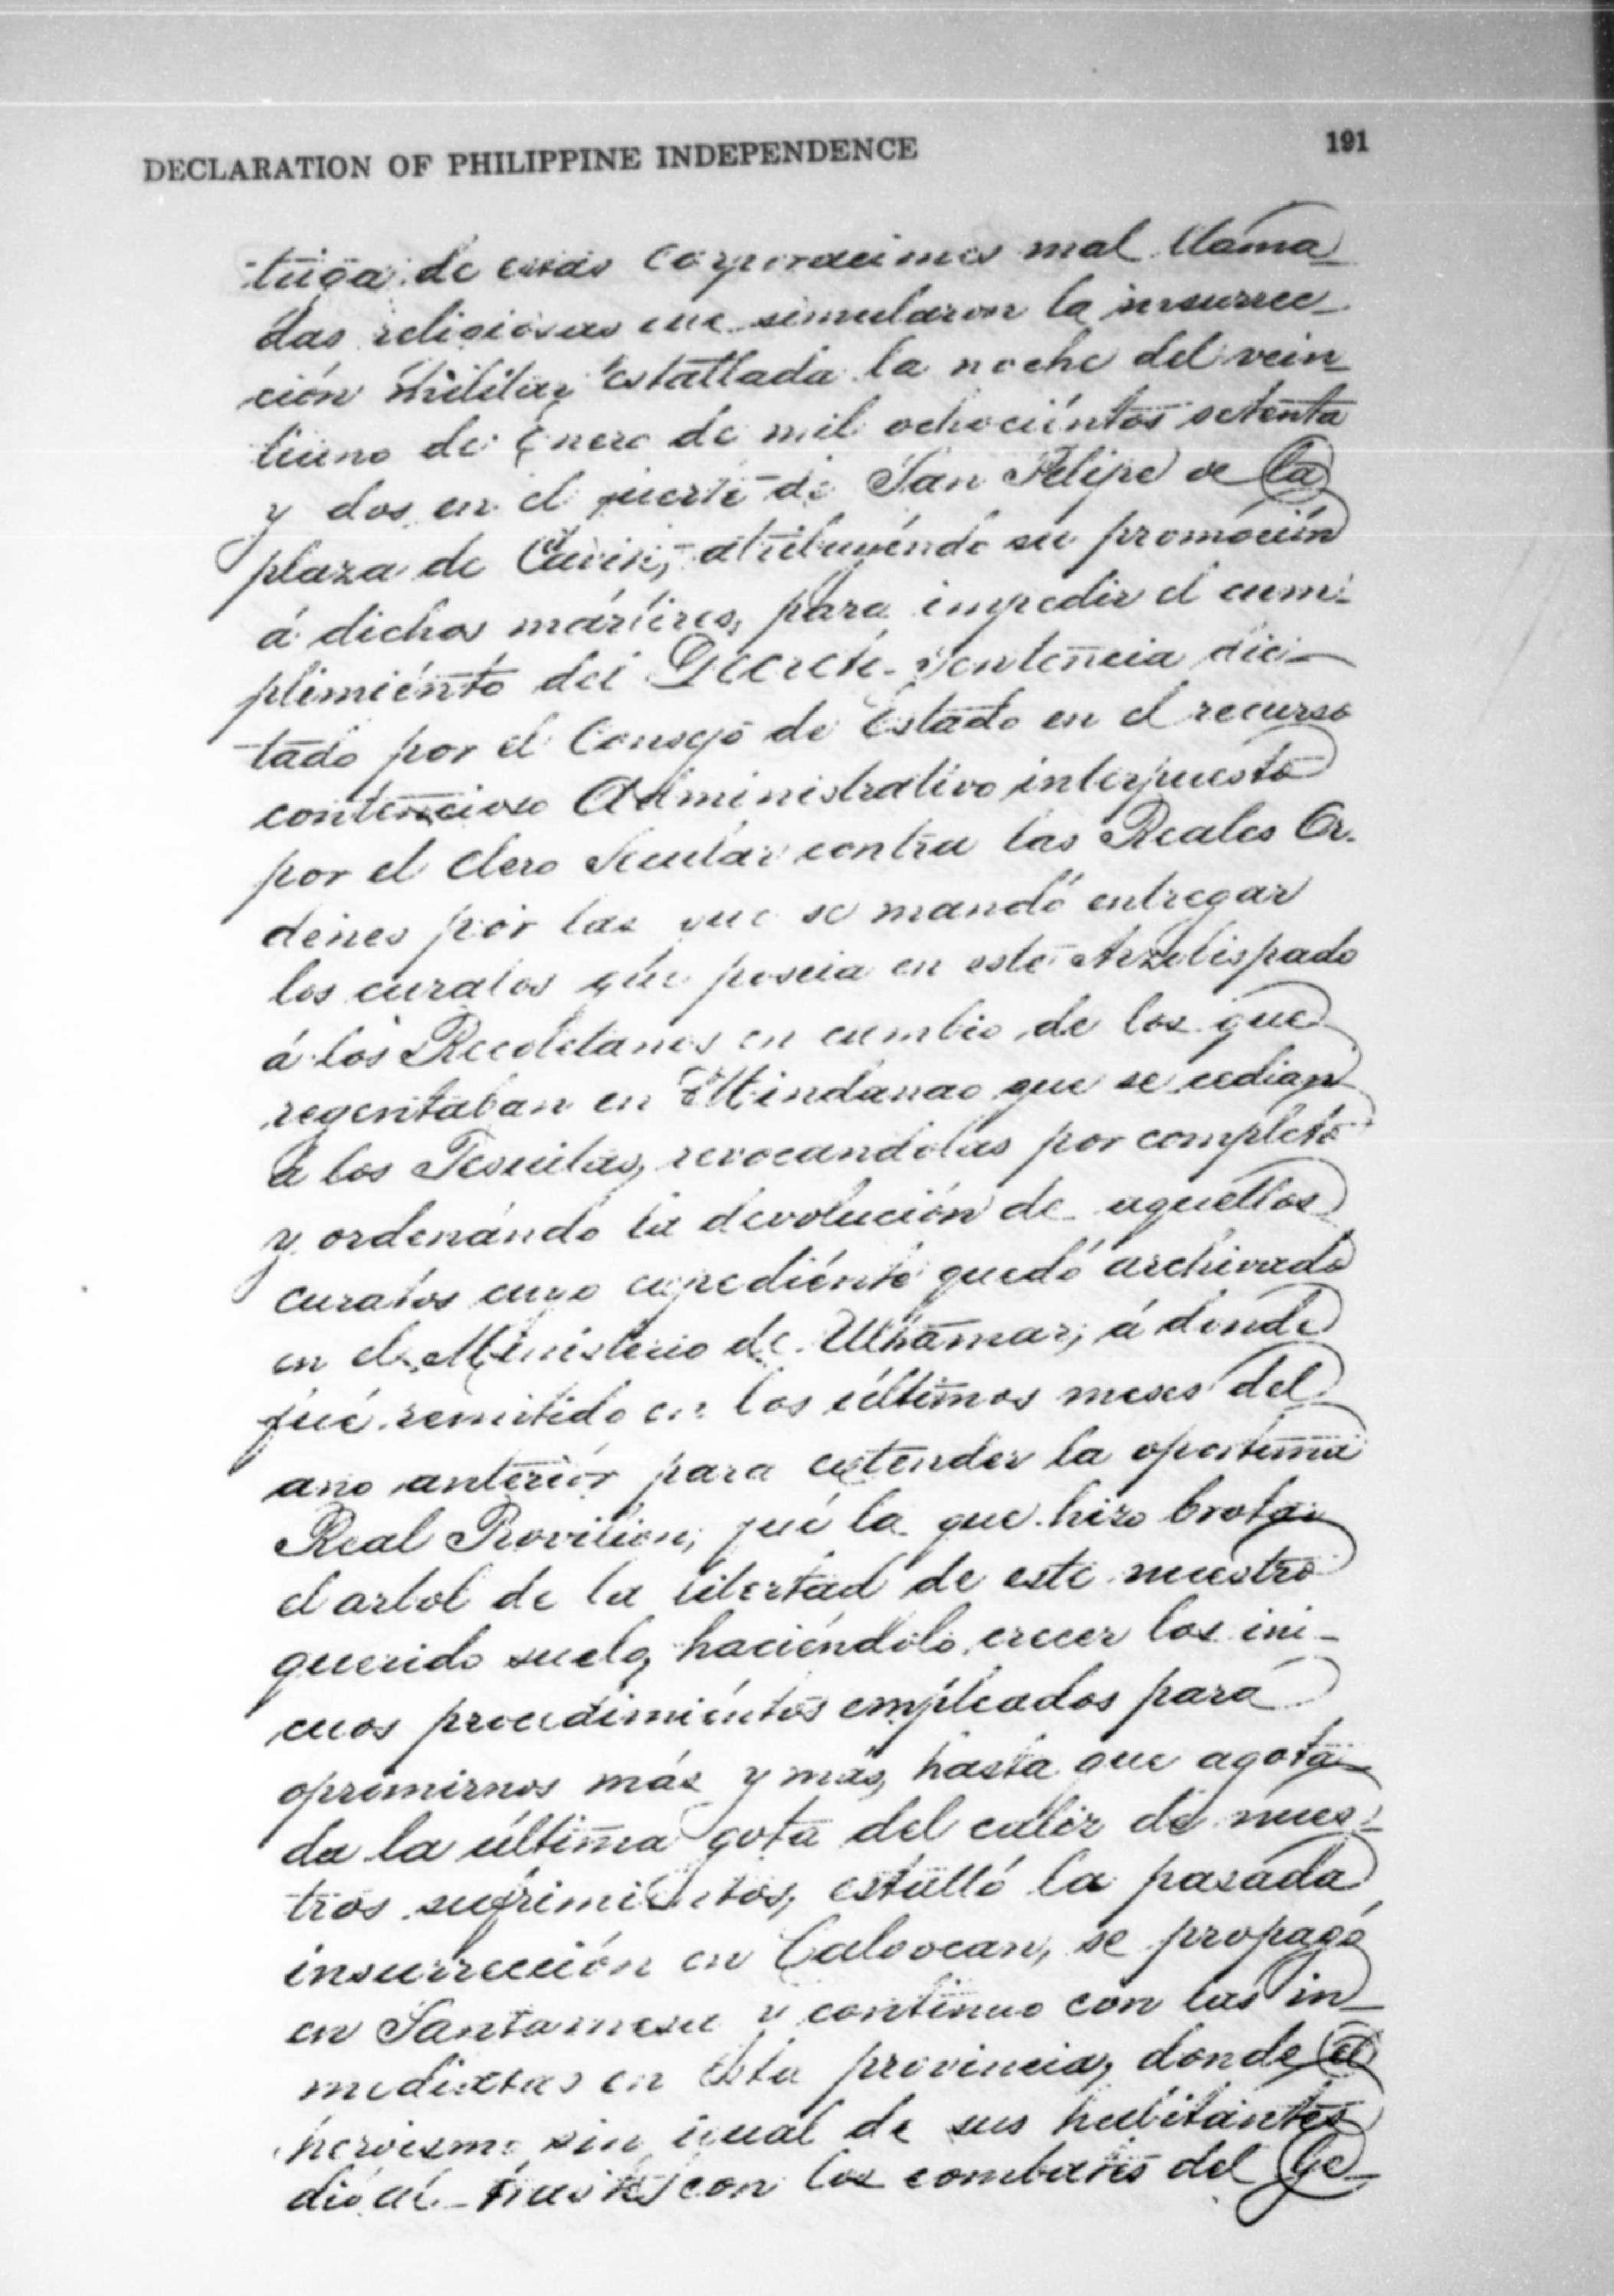 DECLARATION OF PHILIPPINE INDEPENDENCE 191
tuga de esas corporaciones mal llama_
das religiosas que simularon la insurrec_
ción militar estallada la noche del vein_
tiuno de Enero de mil ochociéntos setenta
y dos en el fuerte de San Felipe de la
plaza de Cavite, atribuyéndo su promoción
á dichos mártires, para impedir el cum-
plimiénto del Decreto-sentencia dic-
tado por el Consejo de Estado en el recurso
contencioso Administrativo interpuesto
por el Clero Secular contra las Reales Or-
denes por las que se mandó entregar
los curatos que poseia en este Arzobispado
á los Recoletanos en cambio de los que
regentaban en Mindanao que se cedian
á los Jesuitas, revocandolas por completo
y ordenándo la devolución de aquellos
curatos cuyo expediénte quedó archivado
en el Ministerio de Ultramar, á donde
fué remitido en los últimos meses del
año anterior para extender la oportuna
Real Provision, fué la que hizo brotar
el arbol de la libertad de este nuestro
querido suelo, haciéndolo crecer los ini-
cuos procedimiéntos empleados para
oprimirnos más y más, hasta que agota-
da la última gota del caliz de nues-
tros sufrimientos, estalló la pasada
insurrección en Caloocan, se propagó
en Santamesa y continuo con las in_
mediatas en esta provincia, donde el
heroismo sin igual de sus habitantes
dió al con los combates del Ge-